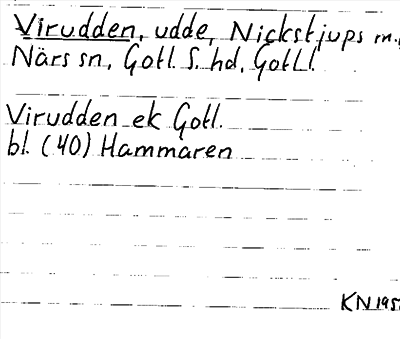 Virudden, udde, Nickstjups m.,
Närs sn, Gotl. S. hd, Gotl.l.
Virudden ek Gotl.
bl. (40) Hammaren
KN 195